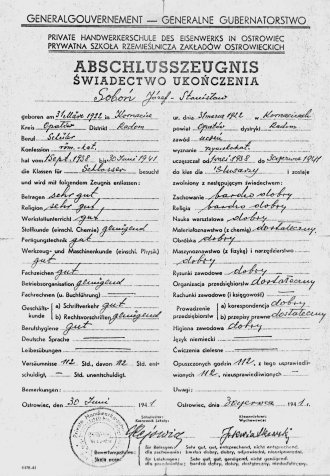 GENERALGOUVERNEMENT — GENERALNE GUBERNATORSTWO
PRIVATE HANDWERKERSCHULE DES EISENWERKS IN OSTROWIEC
PRYWATNA SZKOŁA RZEMIEŚLNICZA ZAKŁADÓW OSTROWIECKICH
ABSCHLUSSZEUGNIS
ŚWIADECTWO UKOŃCZENIA
Soboń Józef-Stanisław
geboren am 31 März 1922 in Kornacice
Kreis Opatów Distrikt Radom
Beruf Schüler
Konfession röm.-kat.
hat vom 1 Sept. 1938 bis 30 Juni 1941
die Klassen für Schlosser besucht
und wird mit folgendem Zeugnis entlassen:
Betragen sehr gut
Religion sehr gut
Werkstattunterricht gut
Stoffkunde (einschl. Chemie) genügend
Fertigungstechnik gut
Werkzeug- und Maschinenkunde (einschl. Physik)
gut
Fachzeichnen gut
Betriebsorganisation genügend
Fachrechnen (u. Buchführung) gut
Geschäftskunde a) Schriftverkehr gut
b) Rechtsvorschriften genügend
Berufshygiene gut
Deutsche Sprache —
Leibesübungen —
Versäumnisse 112 Std. davon 112 Std. entschuldigt, — Std. unentschuldigt.
Bemerkungen:
Ostrowiec, den 30 Juni 1941
ur. dnia 31 marca 1922 w Kornacicach
powiat Opatów dystrykt Radom
zawód uczeń
wyznanie rzymskokat.
uczęszczał od 1 wrz. 1938 do 30 czerwca 1941
do klas dla Ślusarzy i zostaje
zwolniony z następującym świadectwem:
Zachowanie bardzo dobry
Religia bardzo dobry
Nauka warsztatowa dobry
Materiałoznawstwo (z chemią) dostateczny
Obróbka dobry
Maszynoznawstwo (z fizyką) i narzędzioznawstwo
dobry
Rysunki zawodowe dobry
Organizacja przedsiębiorstw dostateczny
Rachunki zawodowe (i księgowość) dobry
Prowadzenie przedsiębiorstwa a) korespondencja dobry
b) przepisy prawne dostateczny
Higiena zawodowa dobry
Język niemiecki —
Ćwiczenia cielesne —
Opuszczonych godzin 112, z tego usprawiedliwionych 112, nieusprawiedliwiono —
Uwagi:
Ostrowiec, dnia 30 czerwca 1941 r.